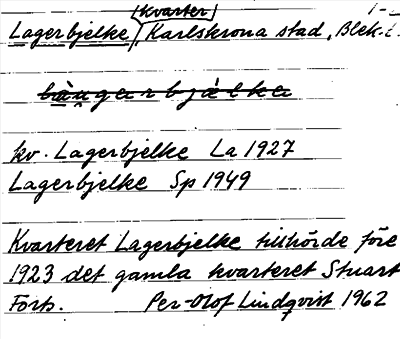 kvarter 1-
Lagerbjelke, Karlskrona stad, Blek. l.
kv. Lagerbjelke La 1927
Lagerbjelke Sp 1949
Kvarteret Lagerbjelke tillhörde före
1923 det gamla kvarteret Stuart
Forts. Per-Olof Lindqvist 1962